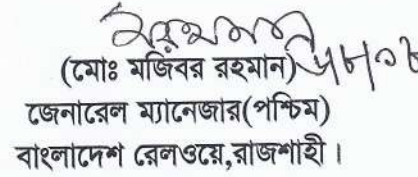 (মোঃ মজিবর রহমান)
জেনারেল ম্যানেজার(পশ্চিম)
বাংলাদেশ রেলওয়ে,রাজশাহী।